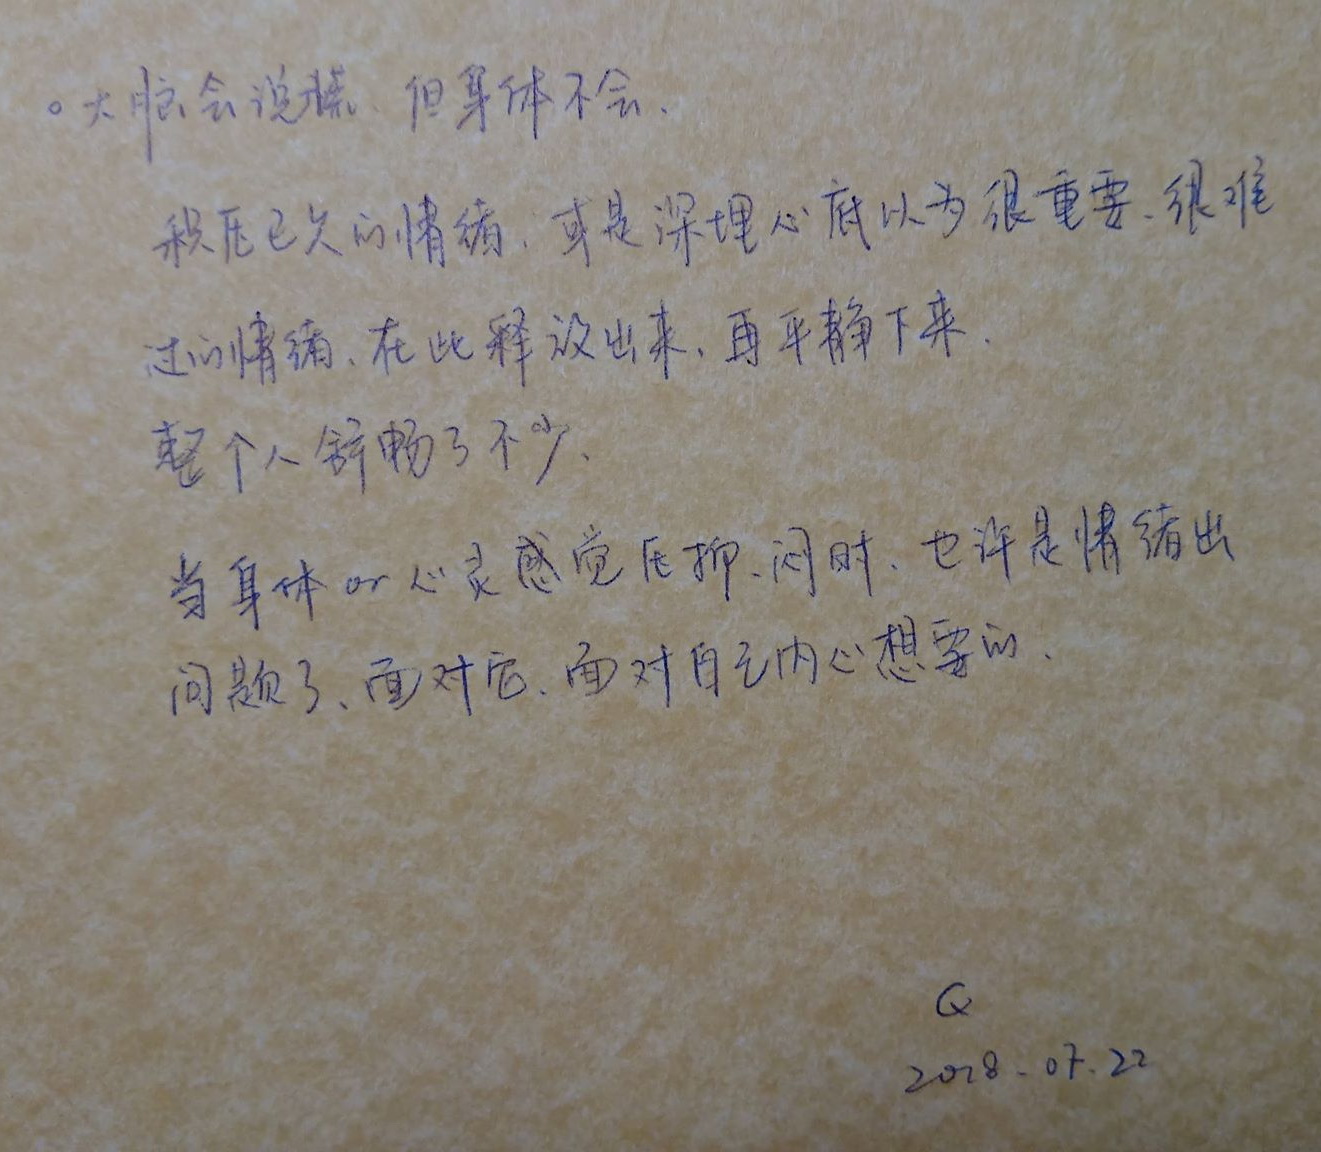 。大脑会说谎、但身体不会、
积压已久的情绪、或是深埋心底以为很重要、很难
过的情绪、在此释放出来、再平静下来.
整个人舒畅了不少、
当身体or心灵感觉压抑、闷时、也许是情绪出
问题了、面对它、面对自己内心想要的、
Q
2018.07.22